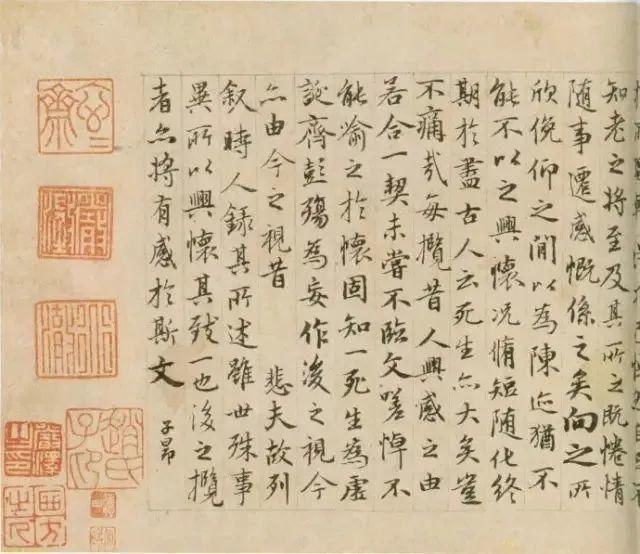 知老之將至及其所之既惓情
随事遷感慨係之矣向之所
欣俛仰之間以為陳迹猶不
能不以之興懷況脩短随化終
期於盡古人云死生亦大矣豈
不痛哉每攬昔人興感之由
若合一契未嘗不臨文嗟悼不
能喻之於懷固知一死生為虛
誕齊彭殤為妄作後之視今
亦由今之視昔 悲夫故列
叙時人錄其所述雖世殊事
異所以興懷其致一也後之攬
者亦將有感於斯文
子昂
趙氏子昂